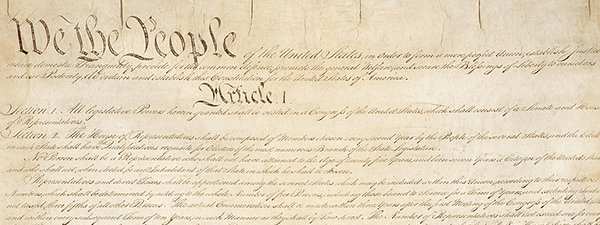 We the People of the United States, in Order to form a more perfect Union, establish Justice
insure domestic Tranquility, provide for the common defence, promote the general Welfare, and secure the Blessings of Liberty to ourselves
and our Posterity, do ordain and establish this Constitution for the United States of America.
Article. I.
Section. 1. All legislative Powers herein granted shall be vested in a Congress of the United States, which shall consist of a Senate and House
of Representatives.
Section. 2. The House of Representatives shall be composed of Members chosen every second Year by the People of the several States, and the Electors
in each State shall have Qualifications requisite for Electors of the most numerous Branch of the State Legislature.
No Person shall be a Representative who shall not have attained to the Age of twenty five Years, and been seven Years a Citizen of the United States
and who shall not, when elected, be an Inhabitant of that State in which he shall be chosen.
Representatives and direct Taxes shall be apportioned among the several States which may be included within this Union, according to their respective
Numbers, which shall be determined by adding to the whole Number of free Persons, including those bound to Service for a Term of Years, and excluding Indians
not taxed, three fifths of all other Persons. The actual Enumeration shall be made within three Years after the first Meeting of the Congress of the United States
and within every subsequent Term of ten Years, in such Manner as they shall by Law direct. The Number of Representatives shall not exceed one for every